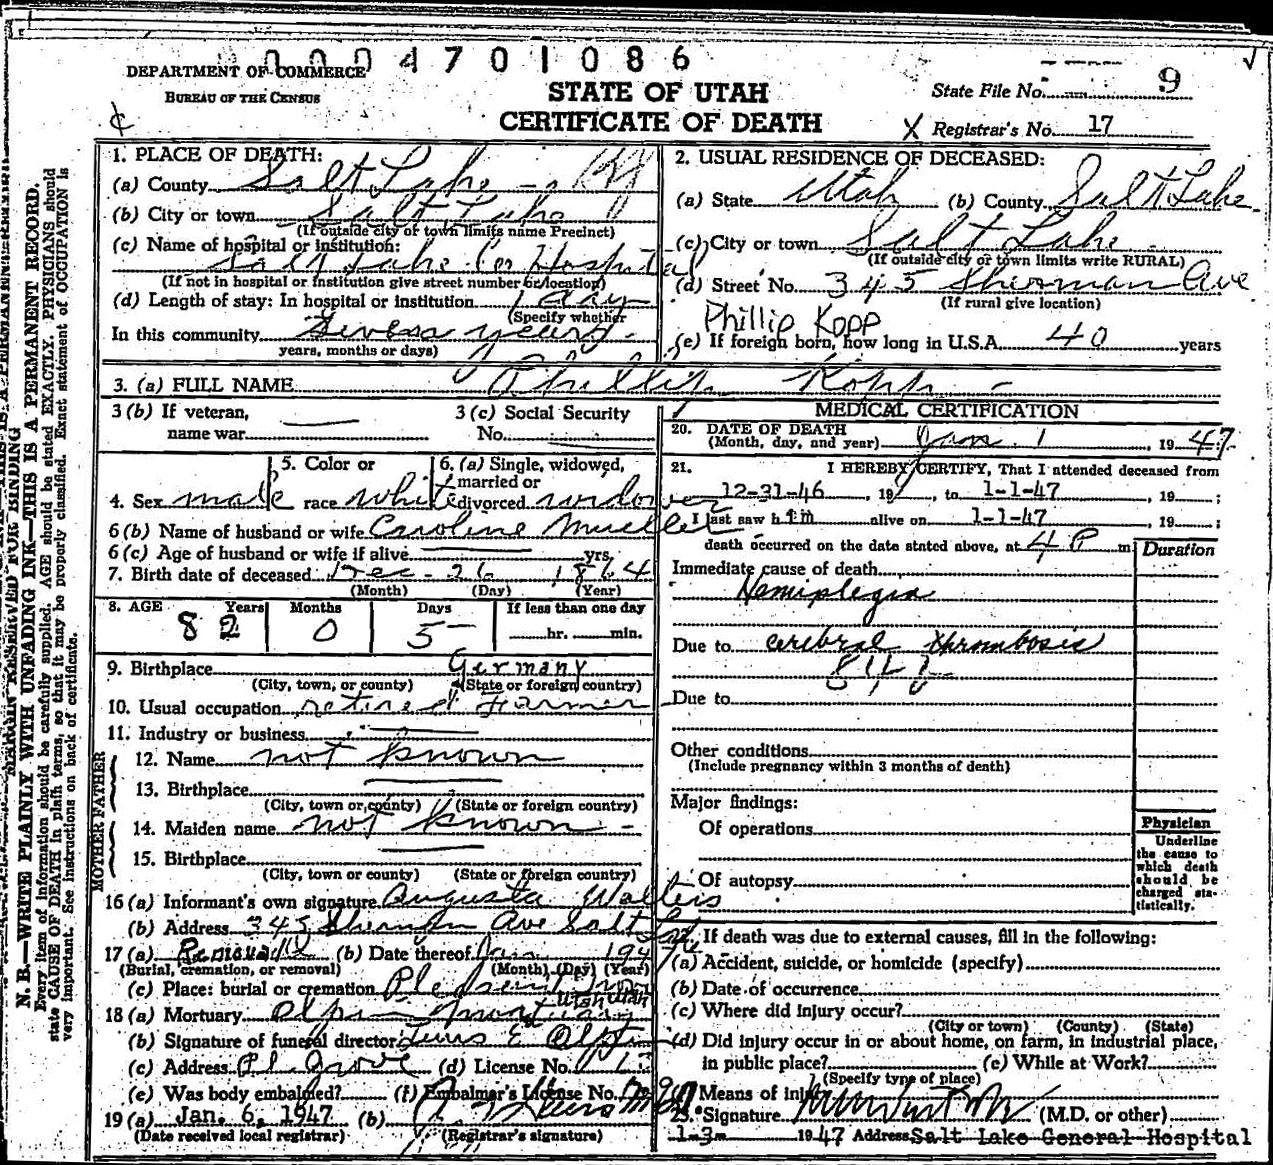 0004701086
DEPARTMENT OF COMMERCE
BUREAU OF THE CENSUS
STATE OF UTAH
CERTIFICATE OF DEATH
State File No. 9
X Registrar's No. 17
MARGIN RESERVED FOR BINDING
N. B.—WRITE PLAINLY WITH UNFADING INK—THIS IS A PERMANENT RECORD.
Every item of information should be carefully supplied. AGE should be stated EXACTLY. PHYSICIANS should
state CAUSE OF DEATH in plain terms, so that it may be properly classified. Exact statement of OCCUPATION is
very important. See instructions on back of certificate.
1. PLACE OF DEATH:
(a) County Salt Lake
(b) City or town Salt Lake
(If outside city or town limits name Precinct)
(c) Name of hospital or institution:
Salt Lake Co Hospital
(If not in hospital or institution give street number or location)
(d) Length of stay: In hospital or institution 1 day
(Specify whether
In this community years
years, months or days)
2. USUAL RESIDENCE OF DECEASED:
(a) State Utah (b) County Salt Lake
(c) City or town Salt Lake
(If outside city or town limits write RURAL)
(d) Street No. 345 Sherman Ave
(If rural give location)
Phillip Kopp
(e) If foreign born, how long in U.S.A. 40 years
3. (a) FULL NAME Phillip Kopp
3 (b) If veteran,
name war
3 (c) Social Security
No.
4. Sex male
5. Color or
race white
6. (a) Single, widowed,
married or
divorced widower
6 (b) Name of husband or wife Caroline Mueller
6 (c) Age of husband or wife if alive yrs.
7. Birth date of deceased Dec - 26 1864
(Month) (Day) (Year)
8. AGE Years Months Days If less than one day
82 0 5 hr. min.
9. Birthplace Germany
(City, town, or county) (State or foreign country)
10. Usual occupation retired Farmer
11. Industry or business
FATHER
12. Name not known
13. Birthplace
(City, town or county) (State or foreign country)
MOTHER
14. Maiden name not known
15. Birthplace
(City, town or county) (State or foreign country)
16 (a) Informant's own signature Augusta Walters
(b) Address 345 Sherman Ave Salt Lake
17 (a) Removal (b) Date thereof Jan 1947
(Burial, cremation, or removal) (Month) (Day) (Year)
(c) Place: burial or cremation Pleasant Utah
18 (a) Mortuary Olpin Mortuary
(b) Signature of funeral director E Olpin
(c) Address Pl. Grove (d) License No.
(e) Was body embalmed? (f) Embalmer's License No.
19 (a) Jan. 6, 1947 (b)
(Date received local registrar) (Registrar's signature)
MEDICAL CERTIFICATION
20. DATE OF DEATH
(Month, day, and year) Jan. 1 1947
21. I HEREBY CERTIFY, That I attended deceased from
12-31-46, 19, to 1-1-47, 19 ;
I last saw him alive on 1-1-47, 19 ;
death occurred on the date stated above, at 4 P m
Duration
Immediate cause of death
Hemiplegia
Due to cerebral thrombosis
Due to
Other conditions
(Include pregnancy within 3 months of death)
Major findings:
Of operations
Of autopsy
Physician
Underline
the cause to
which death
should be
charged sta-
tistically.
22. If death was due to external causes, fill in the following:
(a) Accident, suicide, or homicide (specify)
(b) Date of occurrence
(c) Where did injury occur?
(City or town) (County) (State)
(d) Did injury occur in or about home, on farm, in industrial place,
in public place? (e) While at Work?
(Specify type of place)
Means of injury
23. Signature (M.D. or other)
1-3- 1947 Address Salt Lake General Hospital